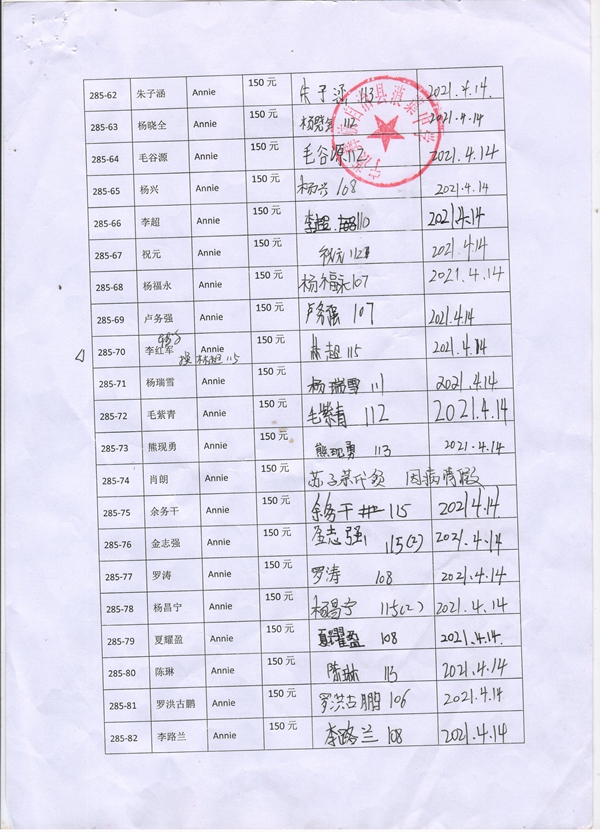 285-62 朱子涵 Annie 150 元 朱子涵 113 2021.4.14.
285-63 杨晓全 Annie 150 元 杨晓全 112 2021.4.14
285-64 毛谷源 Annie 150 元 毛谷源 112 2021.4.14
285-65 杨兴 Annie 150 元 杨兴 108 2021.4.14
285-66 李超 Annie 150 元 李超 110 2021.4.14
285-67 祝元 Annie 150 元 祝元 112 2021.4.14
285-68 杨福永 Annie 150 元 杨福永 107 2021.4.14
285-69 卢务强 Annie 150 元 卢务强 107 2021.4.14
285-70 李红军 Annie 150 元 林超 115 2021.4.14
换 林超 115
285-71 杨瑞雪 Annie 150 元 杨瑞雪 111 2021.4.14
285-72 毛紫青 Annie 150 元 毛紫青 112 2021.4.14
285-73 熊现勇 Annie 150 元 熊现勇 113 2021.4.14
285-74 肖朗 Annie 150 元 苏子荣代领 因病请假
285-75 余务干 Annie 150 元 余务干 115 2021.4.14
285-76 金志强 Annie 150 元 金志强 115(2) 2021.4.14
285-77 罗涛 Annie 150 元 罗涛 108 2021.4.14
285-78 杨昌宁 Annie 150 元 杨昌宁 115(2) 2021.4.14
285-79 夏耀盈 Annie 150 元 夏耀盈 108 2021.4.14.
285-80 陈琳 Annie 150 元 陈琳 113 2021.4.14
285-81 罗洪古鹏 Annie 150 元 罗洪古鹏 106 2021.4.14
285-82 李路兰 Annie 150 元 李路兰 108 2021.4.14